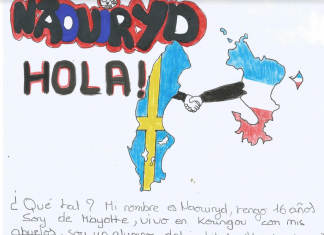 NAOURYD
HOLA!
¿ Qué tal ? Mi nombre es Naouryd, tengo 16 años
Soy de Mayotte, vivo en Koungou con mis
abuelos, soy un alumno del